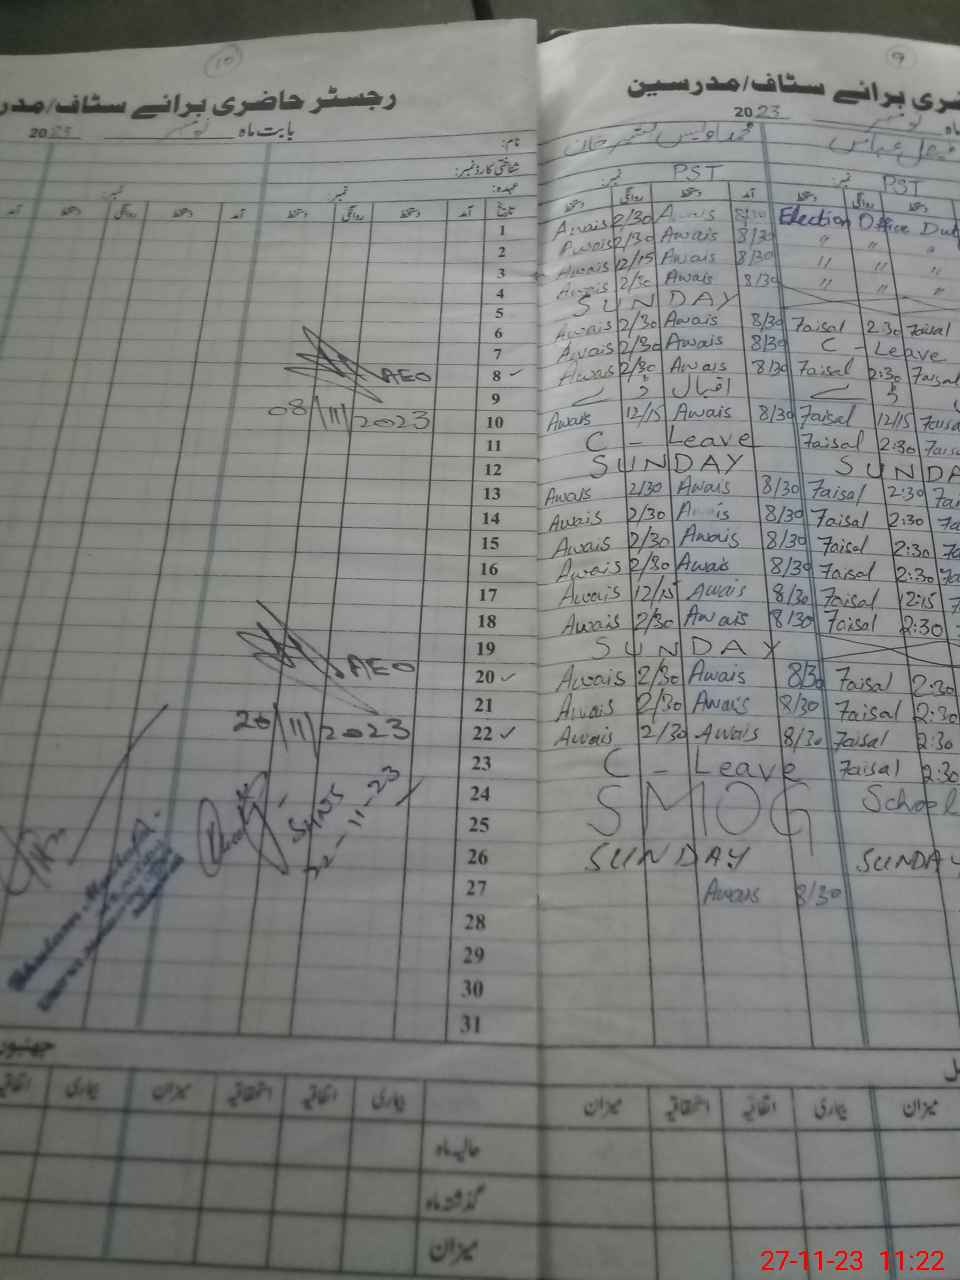 10
رجسٹر حاضری برائے سٹاف/مدر
بابت ماہ نومبر 2023
نام:
شناختی کارڈ نمبر:
عہدہ: نمبر: نمبر:
تاریخ آمد دستخط روانگی دستخط آمد دستخط روانگی دستخط آمد
1
2
3
4
5
6
7
8 ✓ AEO
9
10 08/11/2023
11
12
13
14
15
16
17
18
19
20 ✓ AEO
21
22 ✓ 20/11/2023
23
24
25
26
27
28
29
30
31
22-11-23
بیماری اتفاقیہ استحقاقیہ میزان بیماری اتفاقیہ
حالیہ ماہ
گذشتہ ماہ
میزان
9
ضری برائے سٹاف/مدرسین
ماہ نومبر 2023
فیصل عباس
PST نمبر: PST نمبر:
دستخط روانگی دستخط آمد دستخط روانگی دستخط
Awais 2/30 Awais 8/30 Election Office Dut
Awais 2/30 Awais 8/30 〃 〃 〃
Awais 12/15 Awais 8/30 〃 〃 〃
Awais 2/30 Awais 8/30 〃 〃 〃
SUNDAY
Awais 2/30 Awais 8/30 Faisal 2:30 Faisal
Awais 2/30 Awais 8/30 C - Leave
Awais 2/30 Awais 8/30 Faisal 2:30 Faisal
اقبال ڈے
Awais 12/15 Awais 8/30 Faisal 12/15 Faisa
C - Leave Faisal 2:30 Fais
SUNDAY SUNDA
Awais 2/30 Awais 8/30 Faisal 2:30 Fai
Awais 2/30 Awais 8/30 Faisal 2:30
Awais 2/30 Awais 8/30 Faisal 2:30
Awais 2/30 Awais 8/30 Faisal 2:30
Awais 12/15 Awais 8/30 Faisal 12:15
Awais 2/30 Awais 8/30 Faisal 2:30
SUNDAY
Awais 2/30 Awais 8/30 Faisal 2:30
Awais 2/30 Awais 8/30 Faisal 2:30
Awais 2/30 Awais 8/30 Faisal 2:30
C - Leave Faisal 2:30
SMOG School
SUNDAY SUNDAY
Awais 8/30
میزان بیماری اتفاقیہ استحقاقیہ میزان
27-11-23 11:22